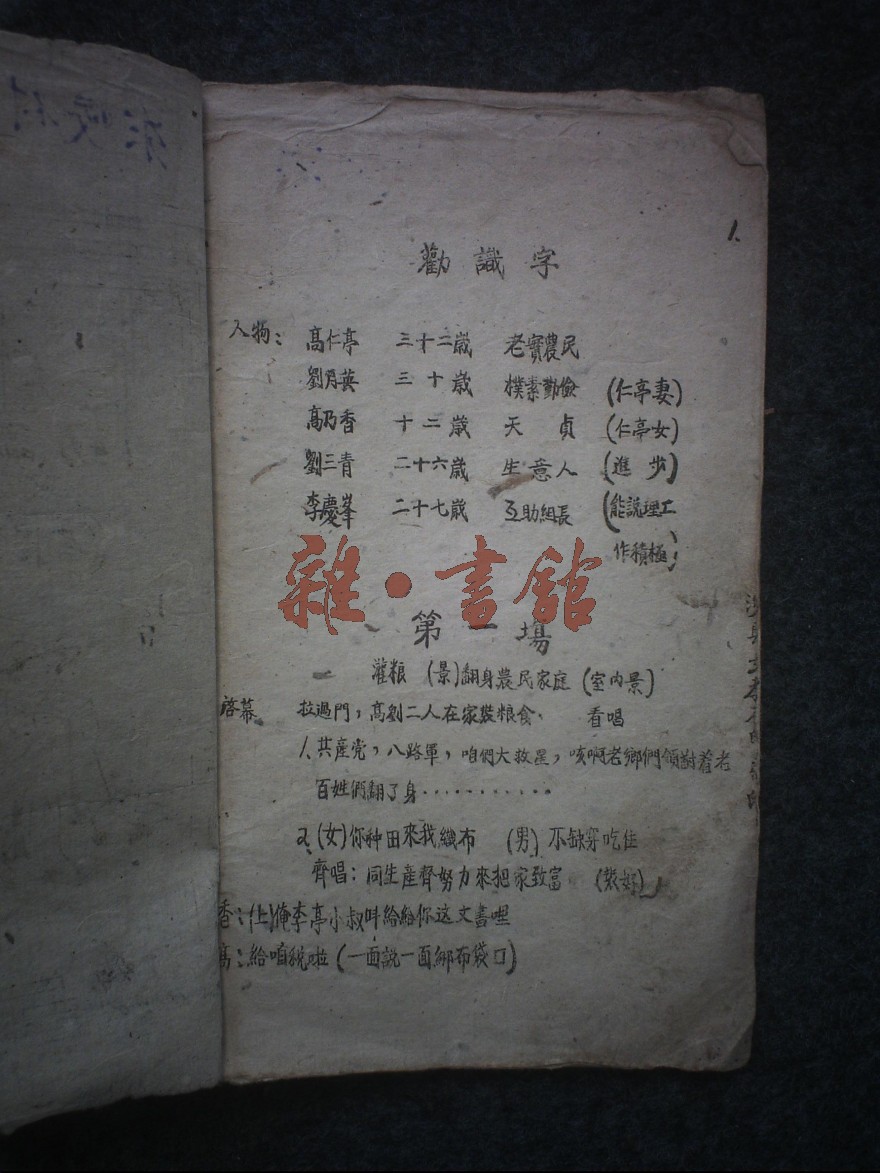 1.
勸識字
人物： 高仁亭 三十二歲 老實農民
劉月英 三十歲 樸素勤儉 (仁亭妻)
高乃香 十二歲 天貞 (仁亭女)
劉三青 二十六歲 生意人 (進步)
李慶峯 二十七歲 互助組長 (能說理工
作積極)
雜·書舘
第一塲
灌粮 (景)翻身農民家庭 (室内景)
啓幕 拉過門，高劉二人在家裝粮食， 看唱
1.共產党，八路軍，咱們大救星，咳啊老鄉們領討着老
百姓們翻了身⋯⋯⋯⋯
2、(女)你种田來我織布 (男)不缺穿吃住
齊唱：同生產齊努力來把家致富 (裝好)
香：(上)俺李亭小叔叫給給你这文書哩
高：給咱税啦(一面說一面綁布袋口)